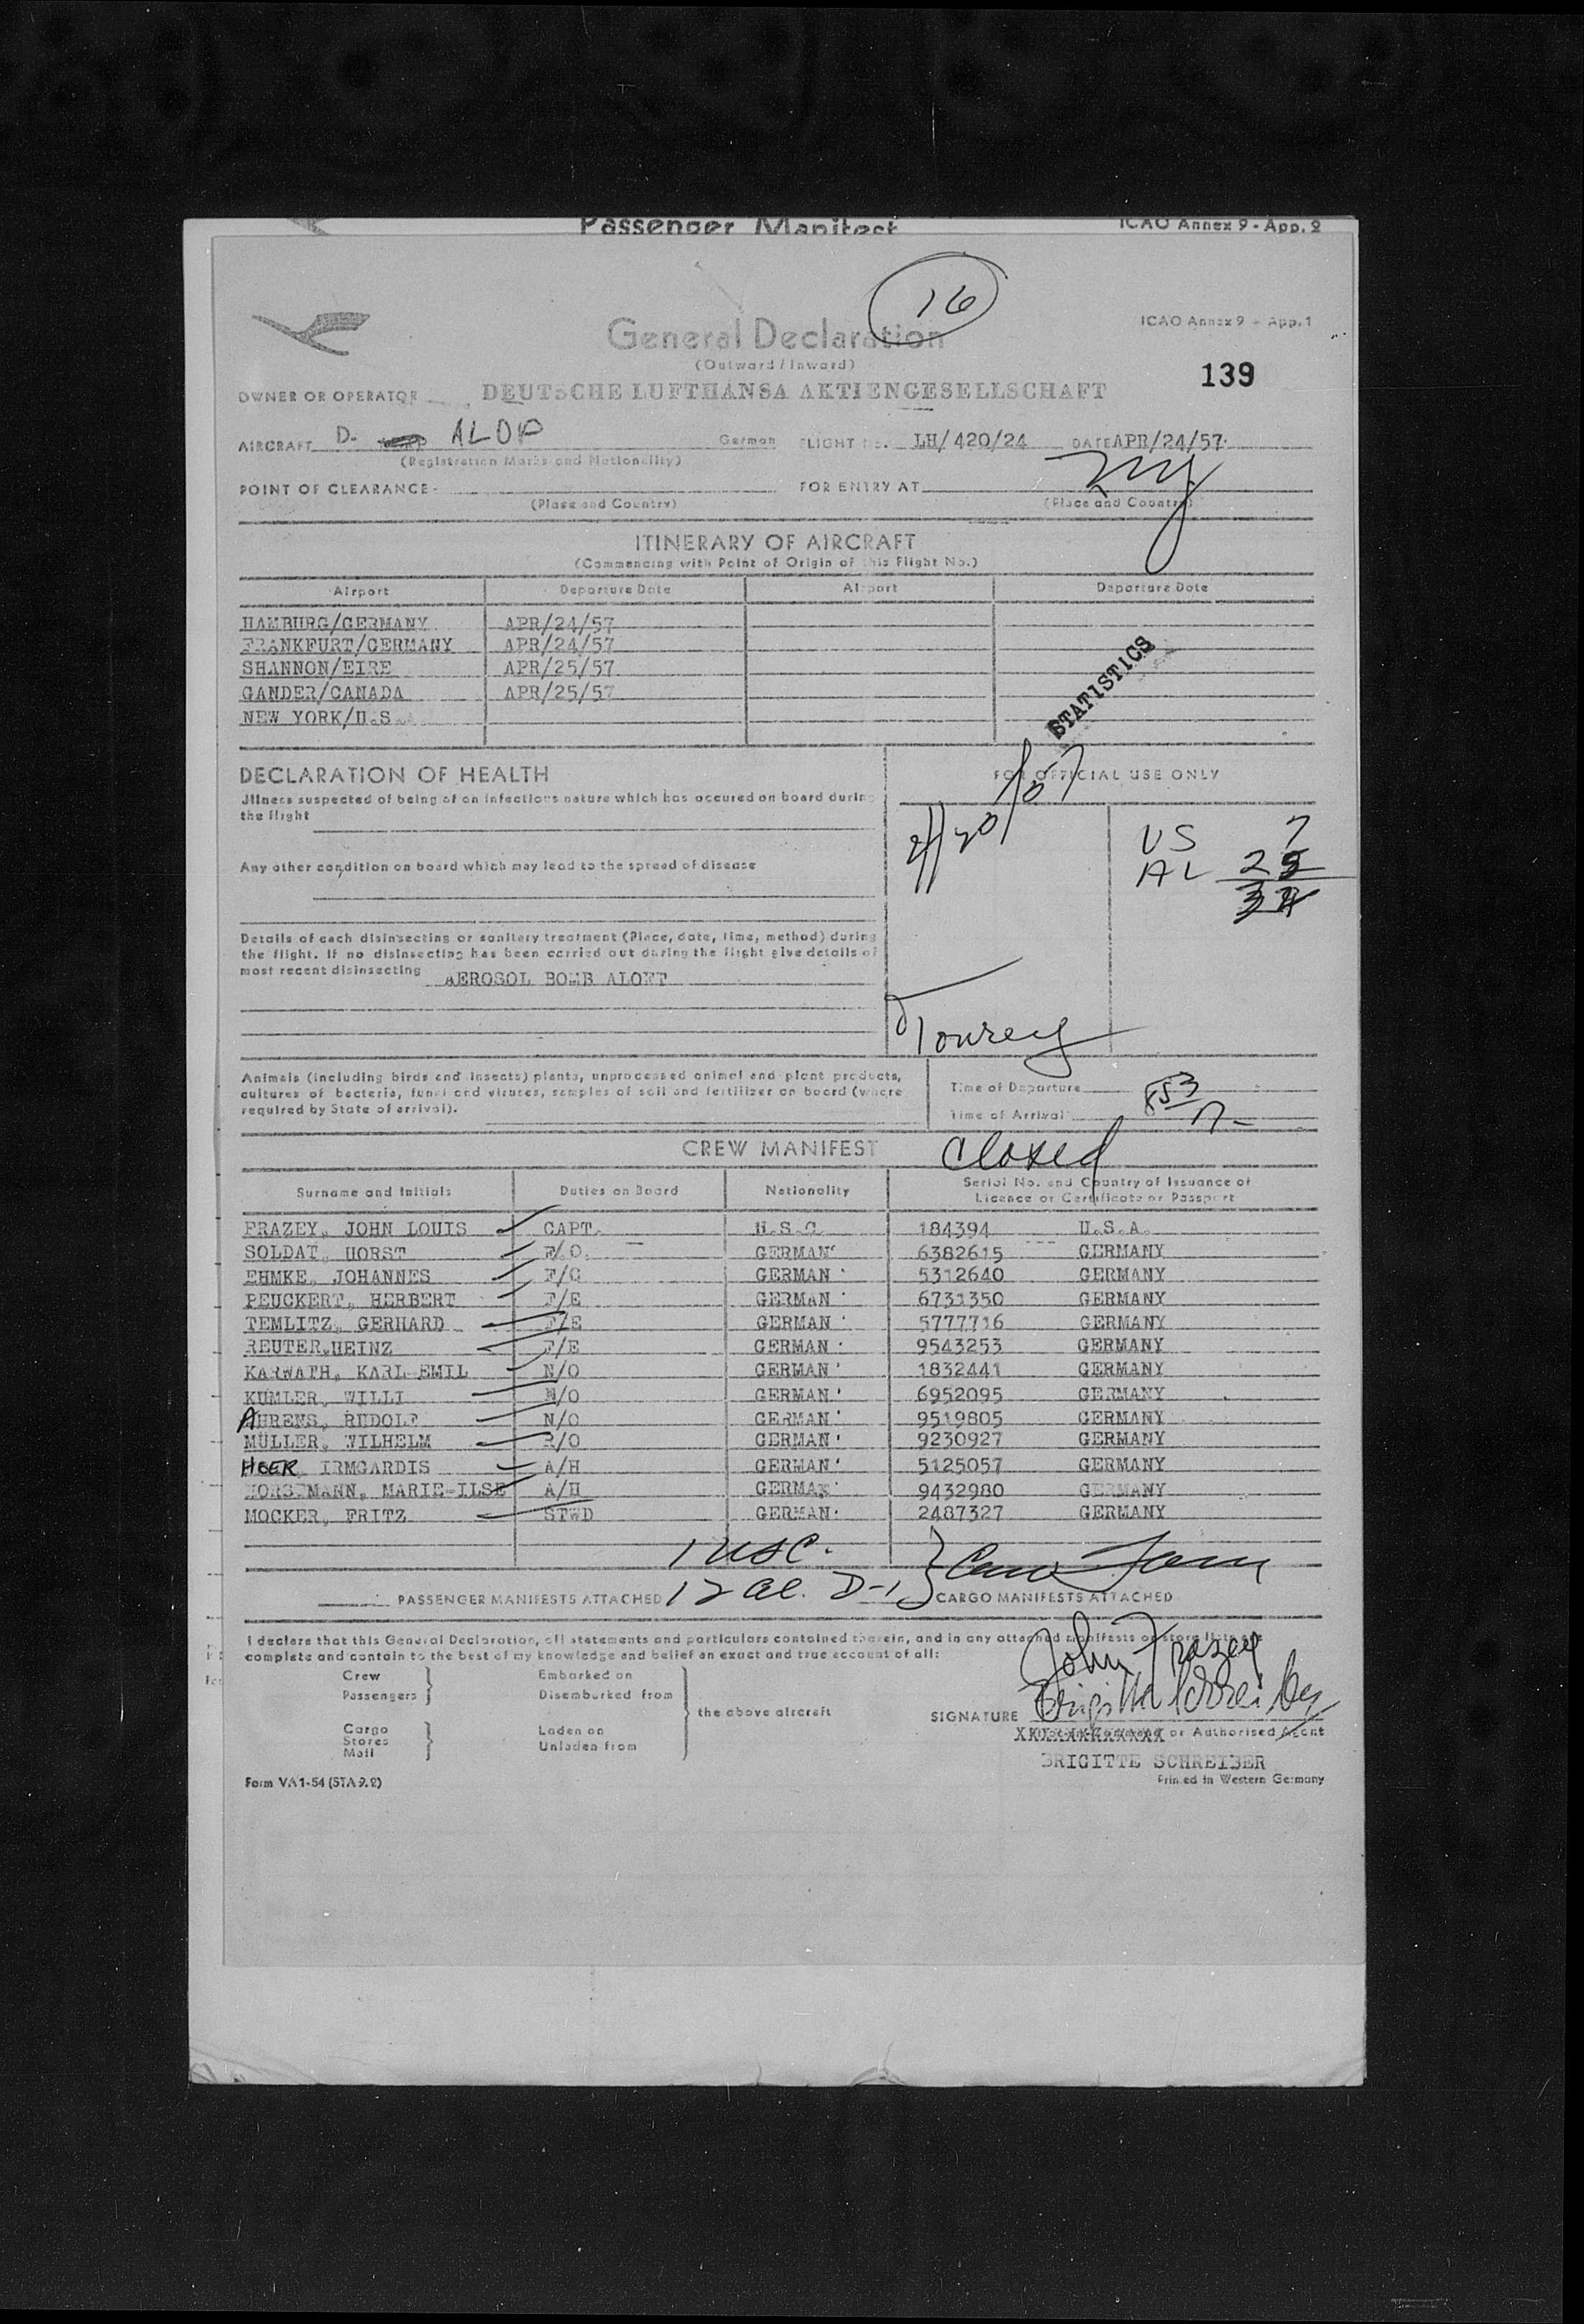 Passenger Manifest ICAO Annex 9 - App. 2
16
General Declaration ICAO Annex 9 - App. 1
(Outward / Inward)
139
OWNER OR OPERATOR DEUTSCHE LUFTHANSA AKTIENGESELLSCHAFT
AIRCRAFT D- ALOP German FLIGHT No. LH/420/24 DATE APR/24/57
(Registration Marks and Nationality)
POINT OF CLEARANCE FOR ENTRY AT NY
(Place and Country) (Place and Country)
ITINERARY OF AIRCRAFT
(Commencing with Point of Origin of this Flight No.)
Airport Departure Date Airport Departure Date
HAMBURG/GERMANY APR/24/57
FRANKFURT/GERMANY APR/24/57
SHANNON/EIRE APR/25/57
GANDER/CANADA APR/25/57
NEW YORK/U.S.A.
STATISTICS
DECLARATION OF HEALTH FOR OFFICIAL USE ONLY
Illness suspected of being of an infectious nature which has occured on board during
the flight
US 7
AL 25
Any other condition on board which may lead to the spread of disease
Details of each disinsecting or sanitary treatment (Place, date, time, method) during
the flight. If no disinsecting has been carried out during the flight give details of
most recent disinsecting AEROSOL BOMB ALOFT
Animals (including birds and insects) plants, unprocessed animal and plant products,
cultures of bacteria, fungi and viruses, samples of soil and fertilizer on board (where
required by State of arrival).
Time of Departure
Time of Arrival
CREW MANIFEST Closed
Surname and Initials Duties on Board Nationality Serial No. and Country of Issuance of
Licence or Certificate or Passport
FRAZEY, JOHN LOUIS CAPT. U.S.C. 184394 U.S.A.
SOLDAT, HORST F/O. GERMAN 6382615 GERMANY
EHMKE, JOHANNES F/O GERMAN 5312640 GERMANY
PEUCKERT, HERBERT F/E GERMAN 6731350 GERMANY
TEMLITZ, GERHARD F/E GERMAN 5777716 GERMANY
REUTER,HEINZ F/E GERMAN 9543253 GERMANY
KARWATH, KARL-EMIL N/O GERMAN 1832441 GERMANY
KUMLER, WILLI N/O GERMAN 6952095 GERMANY
AHRENS, RUDOLF N/O GERMAN 9519805 GERMANY
MÜLLER, WILHELM R/O GERMAN 9230927 GERMANY
IRMGARDIS A/H GERMAN 5125057 GERMANY
HORSTMANN, MARIE-ILSE A/H GERMAN 9432980 GERMANY
MOCKER, FRITZ STWD GERMAN 2487327 GERMANY
1 USC.
PASSENGER MANIFESTS ATTACHED 12 al. D-1 CARGO MANIFESTS ATTACHED
I declare that this General Declaration, all statements and particulars contained therein, and in any attached manifests or store lists are
complete and contain to the best of my knowledge and belief an exact and true account of all:
John Frazey
Crew Embarked on
Passengers Disembarked from
the above aircraft
Brigitte Schreiber
SIGNATURE
Cargo Laden on
Stores
Mail Unladen from
XXXXXXXXXXXXX or Authorised Agent
BRIGITTE SCHREIBER
Form VA 1-54 (STA 9.2) Printed in Western Germany